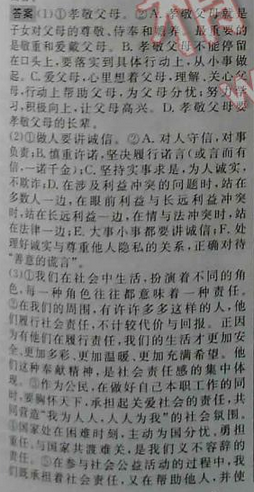 答案 (1)①孝敬父母。②A.孝敬父母就是
子女对父母的尊敬、侍奉和赡养。最重要的
是敬重和爱戴父母。B.孝敬父母不能停留
在口头上,要落实到具体行动上,从小事做
起。C.爱父母,心里想着父母,理解、关心父
母,行动上帮助父母,为父母分忧,努力学
习,积极向上,让父母高兴。D.孝敬父母要
孝敬父母的长辈。
(2)①做人要讲诚信。②A.对人守信,对事
负责;B.慎重许诺,坚决履行诺言(或言而有
信,一诺千金);C.坚持实事求是,为人诚实,
不欺诈;D.在涉及利益冲突的问题时,站在
多数人一边,在眼前利益与长远利益冲突
时,站在长远利益一边,在情与法冲突时,站
在法律一边;E.大事小事都要讲诚信;F.处
理好诚实与尊重他人隐私的关系,正确对待
“善意的谎言”。
(3)①我们在社会中生活,扮演着不同的角
色,每一种角色往往都意味着一种责任。
②在我们的周围,有许许多多这样的人,他
们履行社会责任,不计较代价与回报。正因
为有他们在履行责任,我们的生活才更加安
全、更加多彩、更加温暖、更加充满希望。他
们这种奉献精神,是社会责任感的集中体
现。③作为公民,在做好自己本职工作的同
时,要胸怀天下,承担起关爱社会的责任,共
同营造“我为人人,人人为我”的社会氛围。
④国家处在困难时刻,主动为国分忧,勇担
重任,与国家共渡难关,是我们义不容辞的
责任。⑤在参与社会公益活动的过程中,我
们既承担着社会责任,又在帮助他人,并使